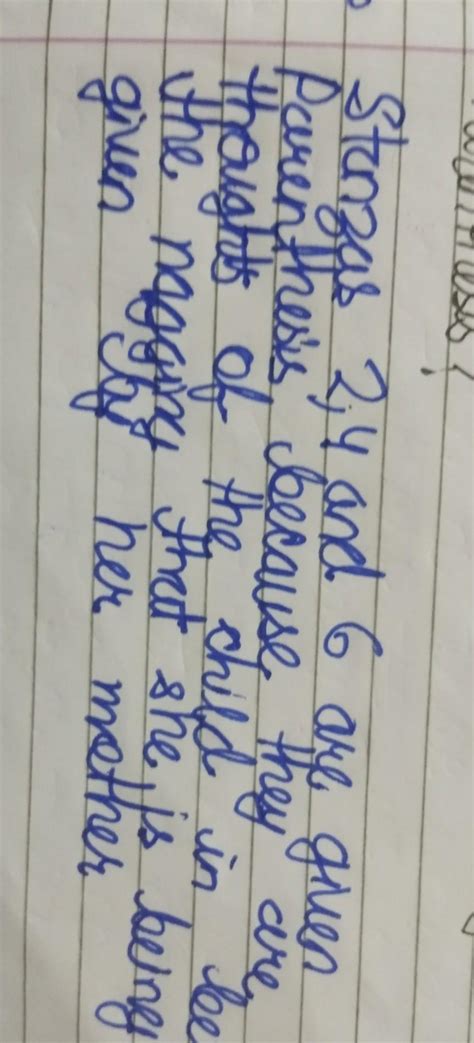 Stanzas 2,4 and 6 are given
parenthesis because they are
thoughts of the child in be
the nagging that she is being
given by her mother